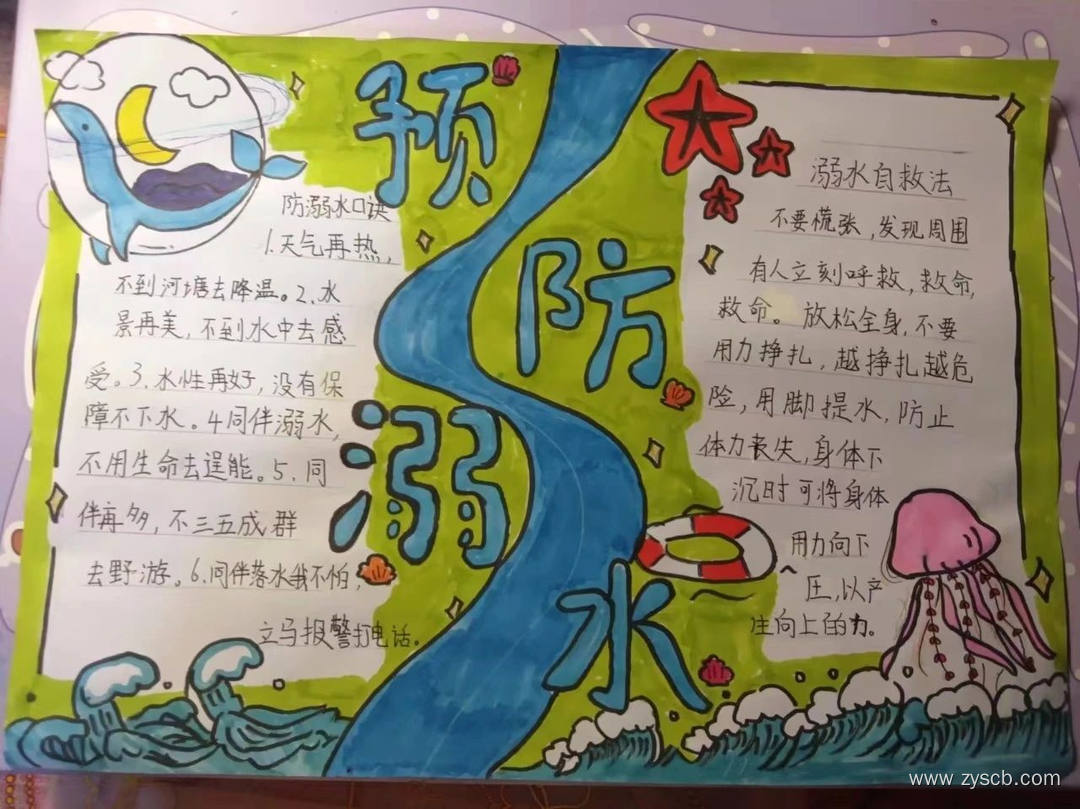 预防溺水
防溺水口诀
1.天气再热,
不到河塘去降温。2.水
景再美,不到水中去感
受。3.水性再好,没有保
障不下水。4同伴溺水,
不用生命去逞能。5.同
伴再多,不三五成群
去野游。6.同伴落水我不怕,
立马报警打电话。
溺水自救法
不要慌张,发现周围
有人立刻呼救,救命,
救命。放松全身,不要
用力挣扎,越挣扎越危
险,用脚提水,防止
体力丧失,身体下
沉时可将身体
用力向下
压,以产
生向上的力。
www.zyscb.com